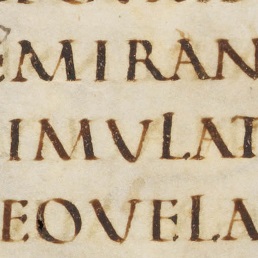 EMIRAN
IMULAT
EOVELA